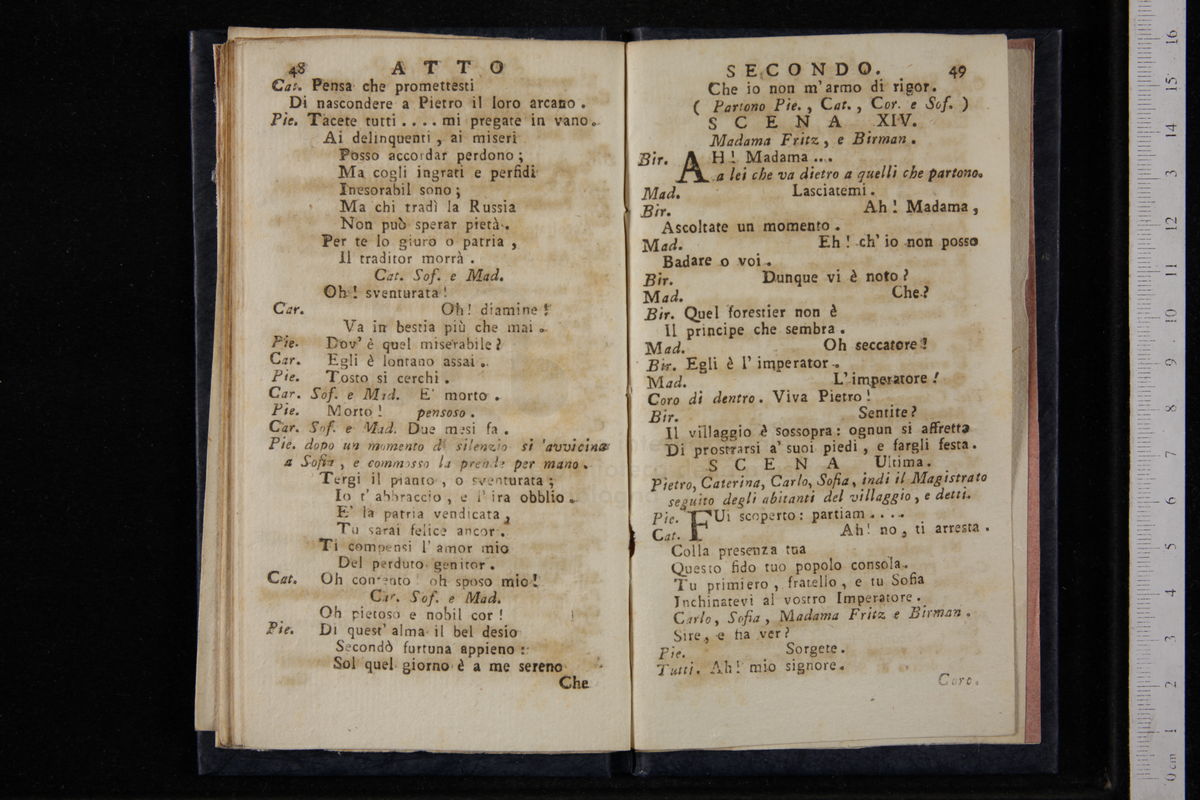 48 ATTO
Cat. Pensa che promettesti
Di nascondere a Pietro il loro arcano.
Pie. Tacete tutti .... mi pregate in vano.
Ai delinquenti, ai miseri
Posso accordar perdono;
Ma cogli ingrati e perfidi
Inesorabil sono;
Ma chi tradì la Russia
Non può sperar pietà.
Per te lo giuro o patria,
Il traditor morrà.
Cat. Sof. e Mad.
Oh! sventurata!
Car. Oh! diamine!
Va in bestia più che mai.
Pie. Dov' è quel miserabile?
Car. Egli è lontano assai.
Pie. Tosto si cerchi.
Car. Sof. e Mad. E' morto.
Pie. Morto! pensoso.
Car. Sof. e Mad. Due mesi fa.
Pie. dopo un momento di silenzio si avvicina
a Sofia, e commosso la prende per mano.
Tergi il pianto, o sventurata;
Io t' abbraccio, e l' ira obblio.
E' la patria vendicata,
Tu sarai felice ancor.
Ti compensi l' amor mio
Del perduto genitor.
Cat. Oh contento! oh sposo mio!
Car. Sof. e Mad.
Oh pietoso e nobil cor!
Pie. Di quest' alma il bel desio
Secondò furtuna appieno:
Sol quel giorno è a me sereno
Che
SECONDO. 49
Che io non m' armo di rigor.
( Partono Pie., Cat., Cor. e Sof. )
SCENA XIV.
Madama Fritz, e Birman.
Bir. AH! Madama ...
a lei che va dietro a quelli che partono.
Mad. Lasciatemi.
Bir. Ah! Madama,
Ascoltate un momento.
Mad. Eh! ch' io non posso
Badare o voi.
Bir. Dunque vi è noto?
Mad. Che?
Bir. Quel forestier non è
Il principe che sembra.
Mad. Oh seccatore!
Bir. Egli è l' imperator.
Mad. L' imperatore!
Coro di dentro. Viva Pietro!
Bir. Sentite?
Il villaggio è sossopra: ognun si affretta
Di prostrarsi a' suoi piedi, e fargli festa.
SCENA Ultima.
Pietro, Caterina, Carlo, Sofia, indi il Magistrato
seguito degli abitanti del villaggio, e detti.
Pie. FUi scoperto: partiam ....
Cat. Ah! no, ti arresta.
Colla presenza tua
Questo fido tuo popolo consola.
Tu primiero, fratello, e tu Sofia
Inchinatevi al vostro Imperatore.
Carlo, Sofia, Madama Fritz e Birman.
Sire, e fia ver?
Pie. Sorgete.
Tutti. Ah! mio signore.
Coro.
0 cm 1 2 3 4 5 6 7 8 9 10 11 12 13 14 15 16